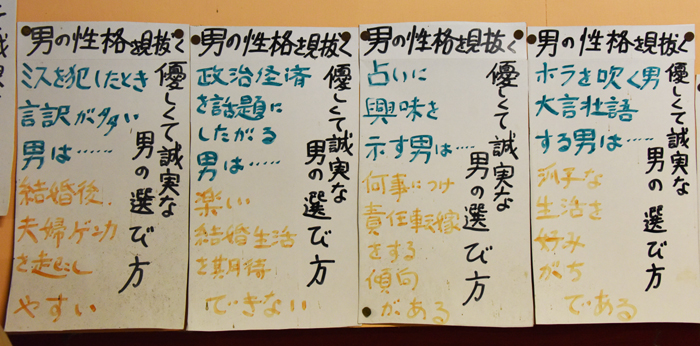 男の性格を見抜く
優しくて誠実な
男の選び方
ミスを犯したとき
言訳が多い
男は……
結婚後、
夫婦ゲンカ
を起こし
やすい
男の性格を見抜く
優しくて誠実な
男の選び方
政治経済
を話題に
したがる
男は……
楽しい
結婚生活
を期待
できない
男の性格を見抜く
優しくて誠実な
男の選び方
占いに
興味を
示す男は……
何事につけ
責任転嫁
をする
傾向
がある
男の性格を見抜く
優しくて誠実な
男の選び方
ホラを吹く男
大言壮語
する男は……
派手な
生活を
好み
がち
である